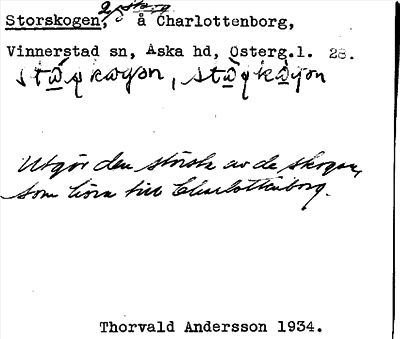 Storskogen, skog å Charlottenborg,
Vinnerstad sn, Aska hd, Österg.l. 28.
Utgör den största av de skogar,
som höra till Charlottenborg.
Thorvald Andersson 1934.